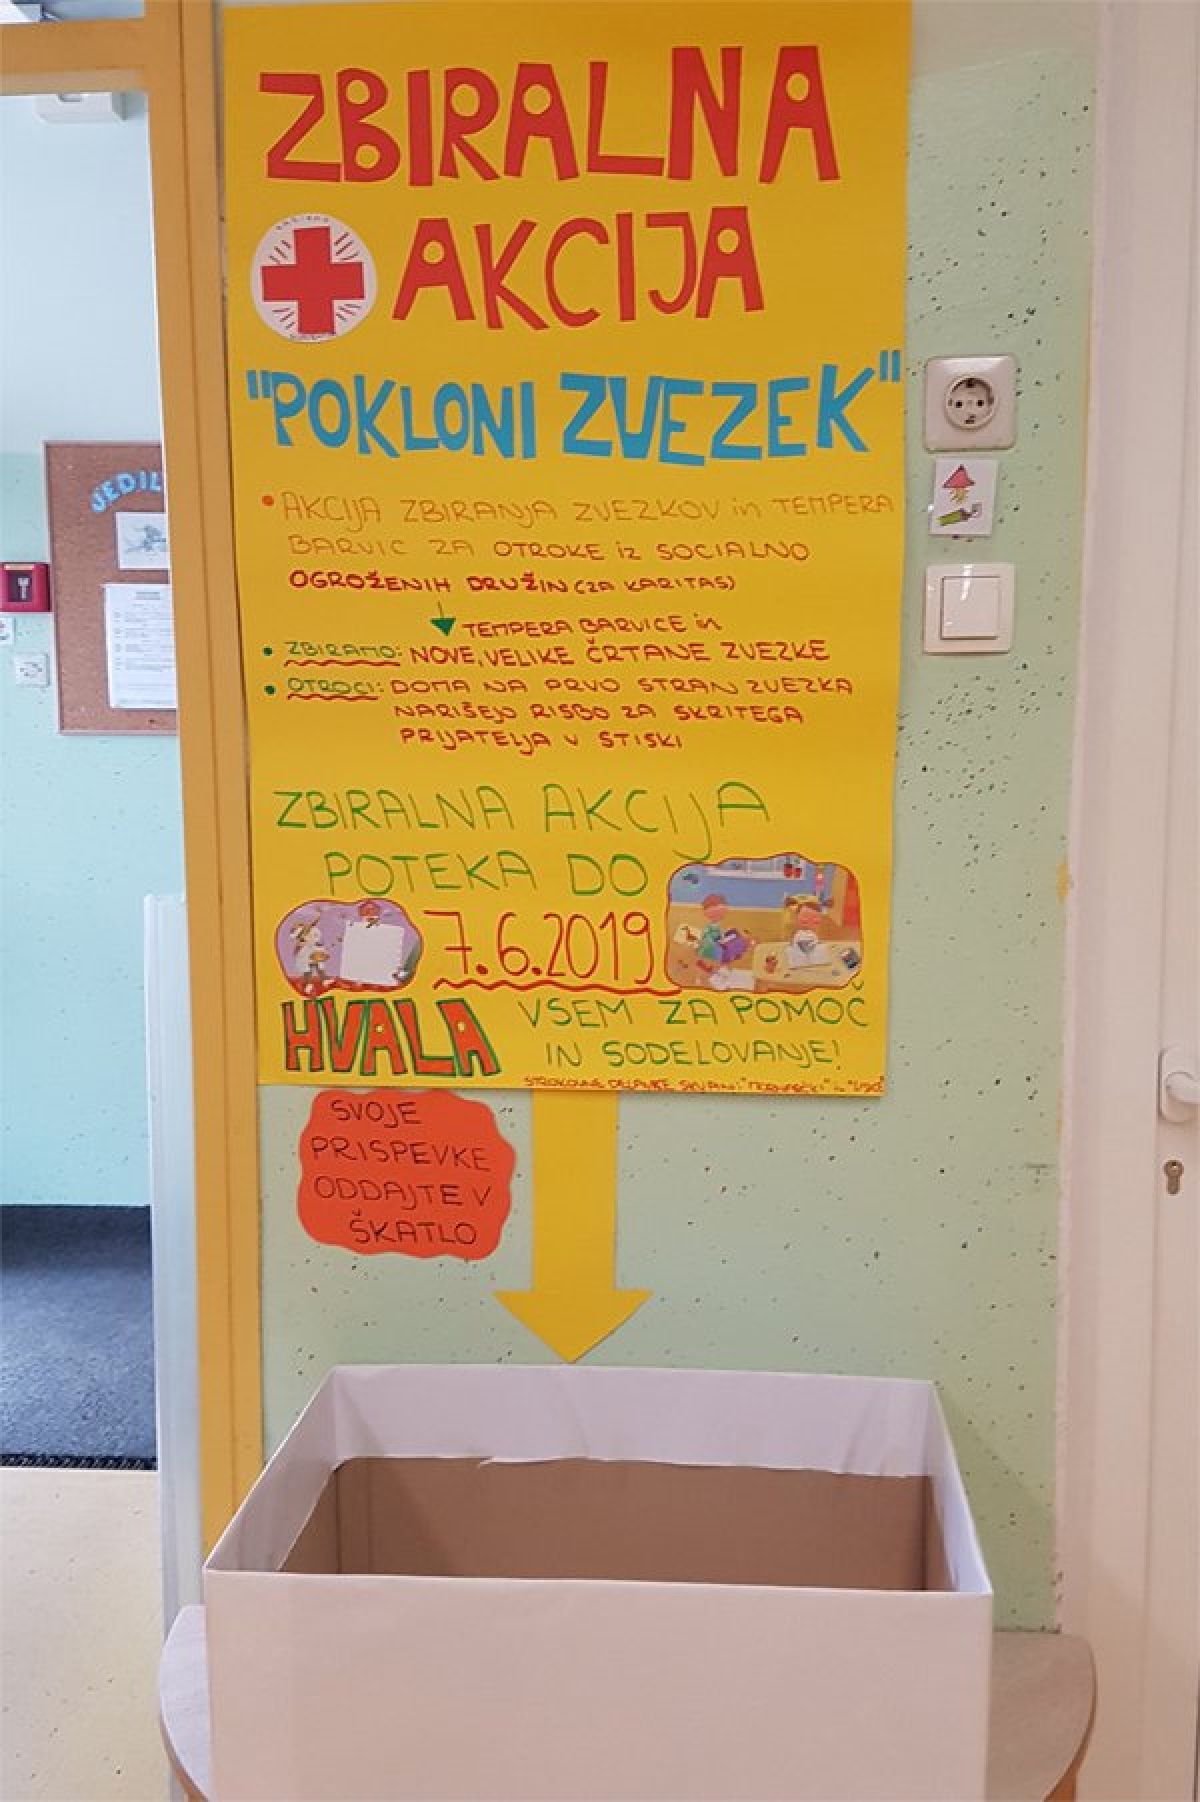 ZBIRALNA
AKCIJA
"POKLONI ZVEZEK"
• AKCIJA ZBIRANJA ZVEZKOV in TEMPERA
BARVIC ZA OTROKE iz SOCIALNO
OGROŽENIH DRUŽIN (ZA KARITAS)
TEMPERA BARVICE in
• ZBIRAMO: NOVE, VELIKE ČRTANE ZVEZKE
• OTROCI: DOMA NA PRVO STRAN ZVEZKA
NARIŠEJO RISBO ZA SKRITEGA
PRIJATELJA V STISKI
ZBIRALNA AKCIJA
POTEKA DO
7.6.2019
HVALA VSEM ZA POMOČ
IN SODELOVANJE!
STROKOVNE DELAVKE SKUPIN
SVOJE
PRISPEVKE
ODDAJTE V
ŠKATLO
JEDIL